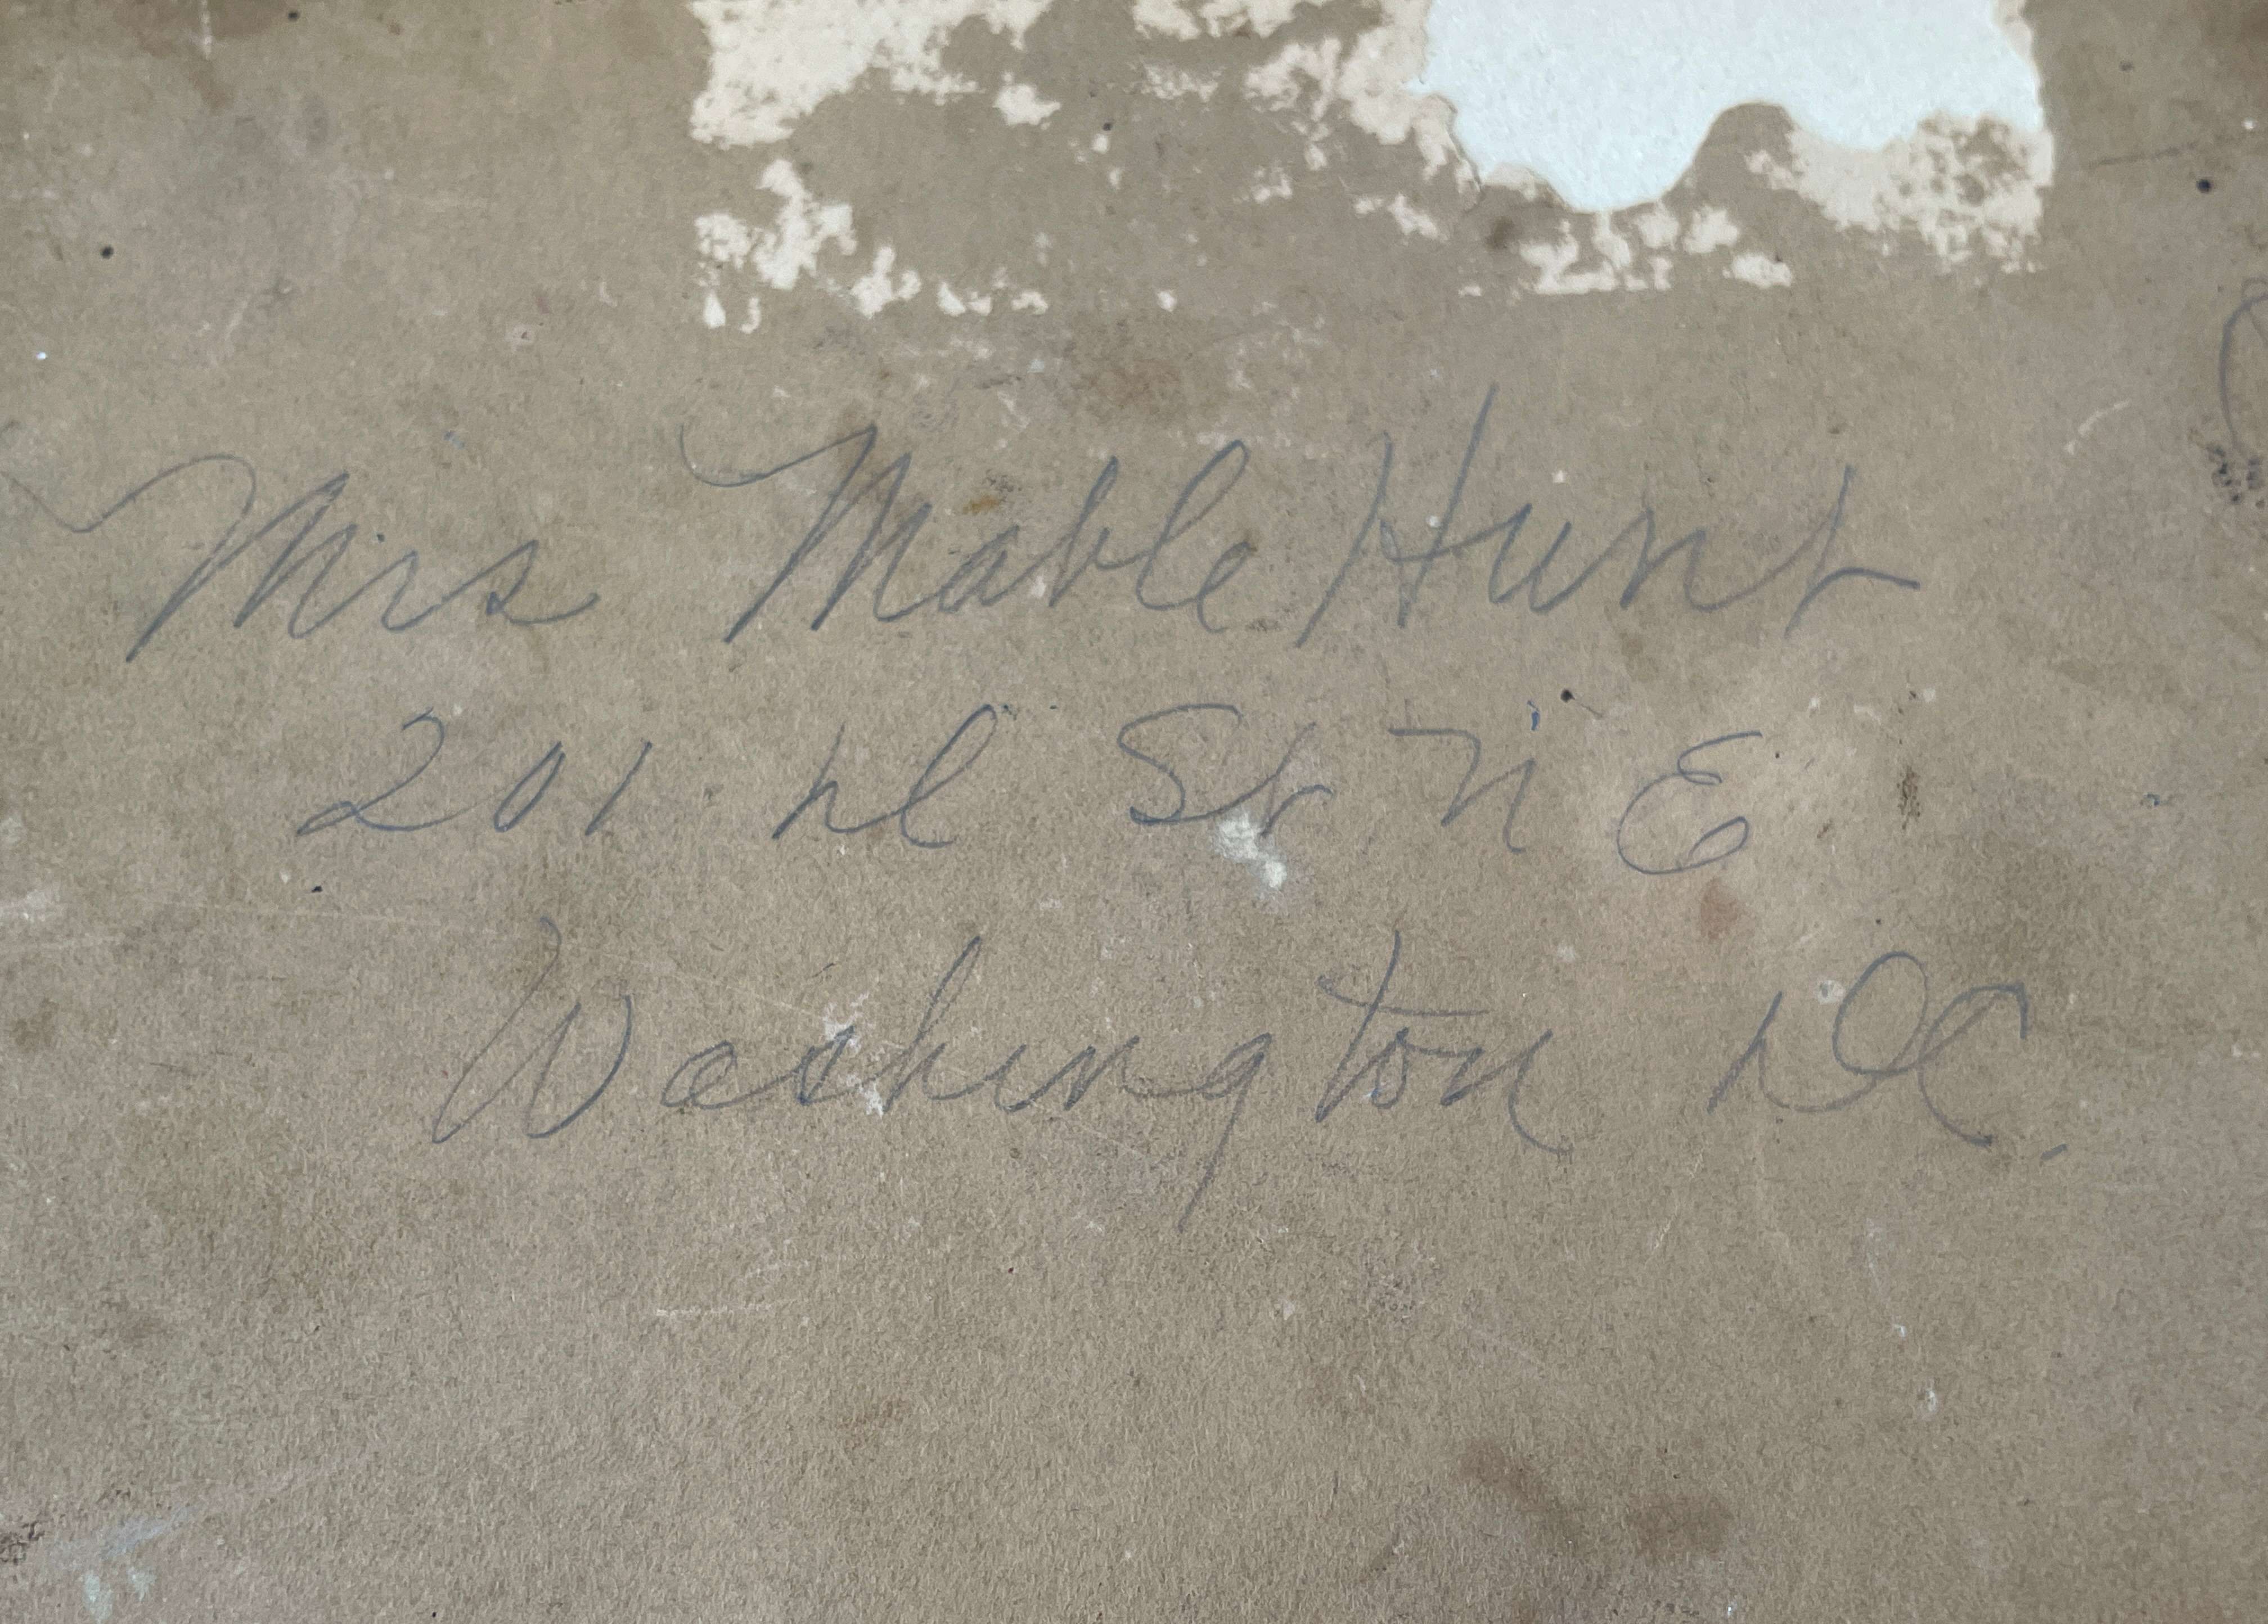 Mrs Mable Hunt
201 St N E
Washington DC.